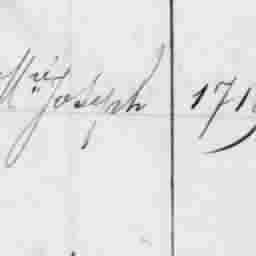 Mie Joseph 171